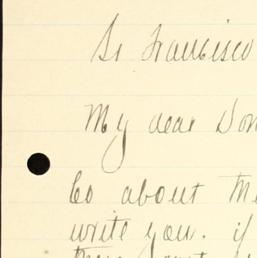 So Francisco
My dear Don
Co about Me
write you. if